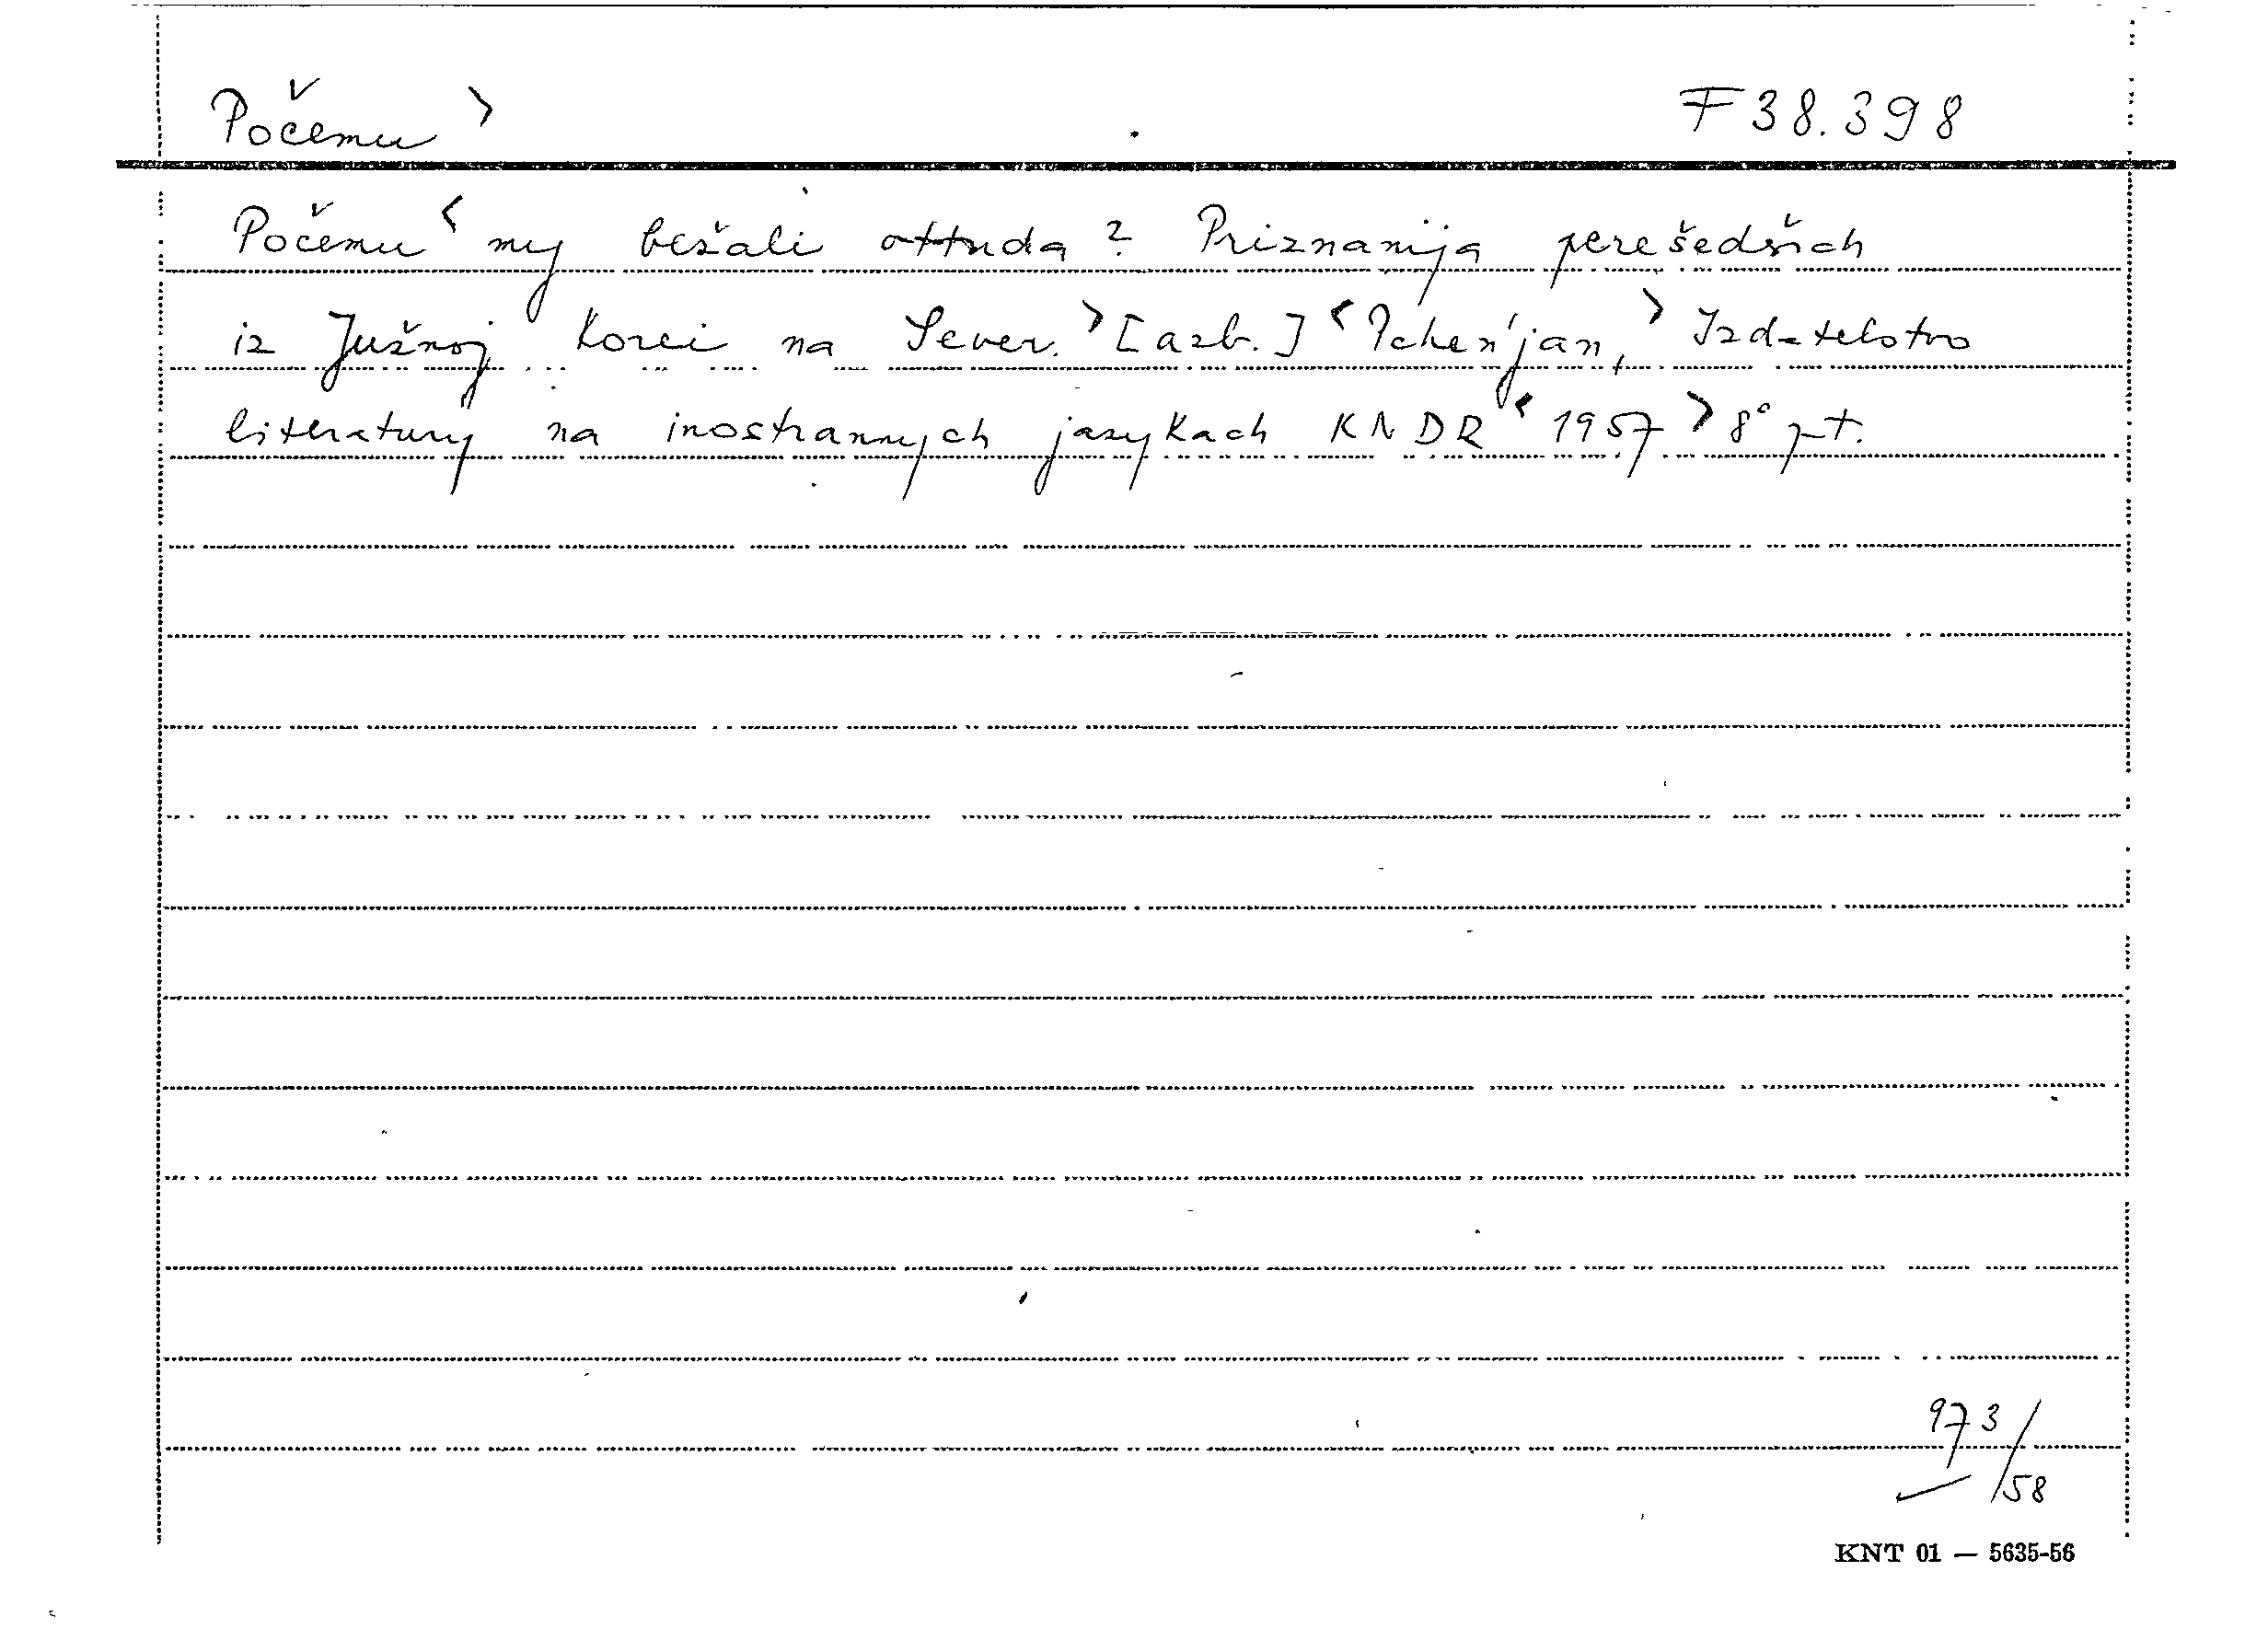 Počemu > F 38.398
Počemu < my bežali ottuda? Priznanija perešedšich
iz Južnoj Korei na Sever. > [azb.] < Pchen'jan, > Izdatelstvo
literatury na inostrannych jazykach KNDR < 1957 > 8°
973/
58
KNT 01 — 5635-56